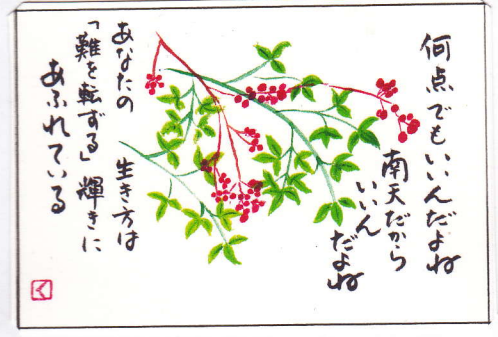 何点でもいいんだよね
南天だから
いいん
だよね
あなたの
生き方は
「難を転ずる」輝きに
あふれている
く